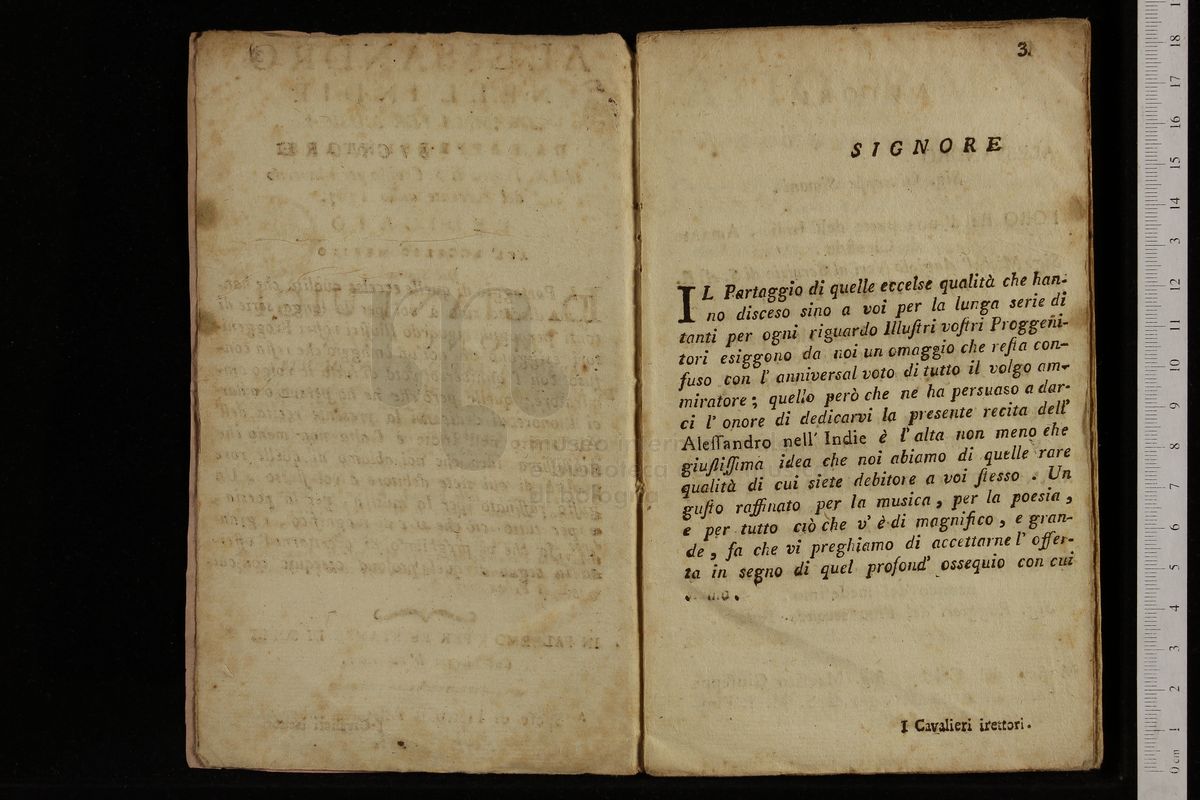 3.
SIGNORE
IL Partaggio di quelle eccelse qualità che han-
no disceso sino a voi per la lunga serie di
tanti per ogni riguardo Illuſtri voſtri Proggeni-
tori esiggono da noi un omaggio che reſta con-
fuso con l' anniversal voto di tutto il volgo am-
miratore; quello però che ne ha persuaso a dar-
ci l' onore di dedicarvi la presente recita dell'
Aleſſandro nell' Indie è l' alta non meno che
giuſtiſſima idea che noi abiamo di quelle rare
qualità di cui siete debitore a voi ſteſso. Un
guſto raffinato per la musica, per la poesia,
e per tutto ciò che v' è di magnifico, e gran-
de, fa che vi preghiamo di accettarne l' offer-
ta in segno di quel profond' ossequio con cui
I Cavalieri irettori.
museo internazionale
biblioteca della musica
di bologna